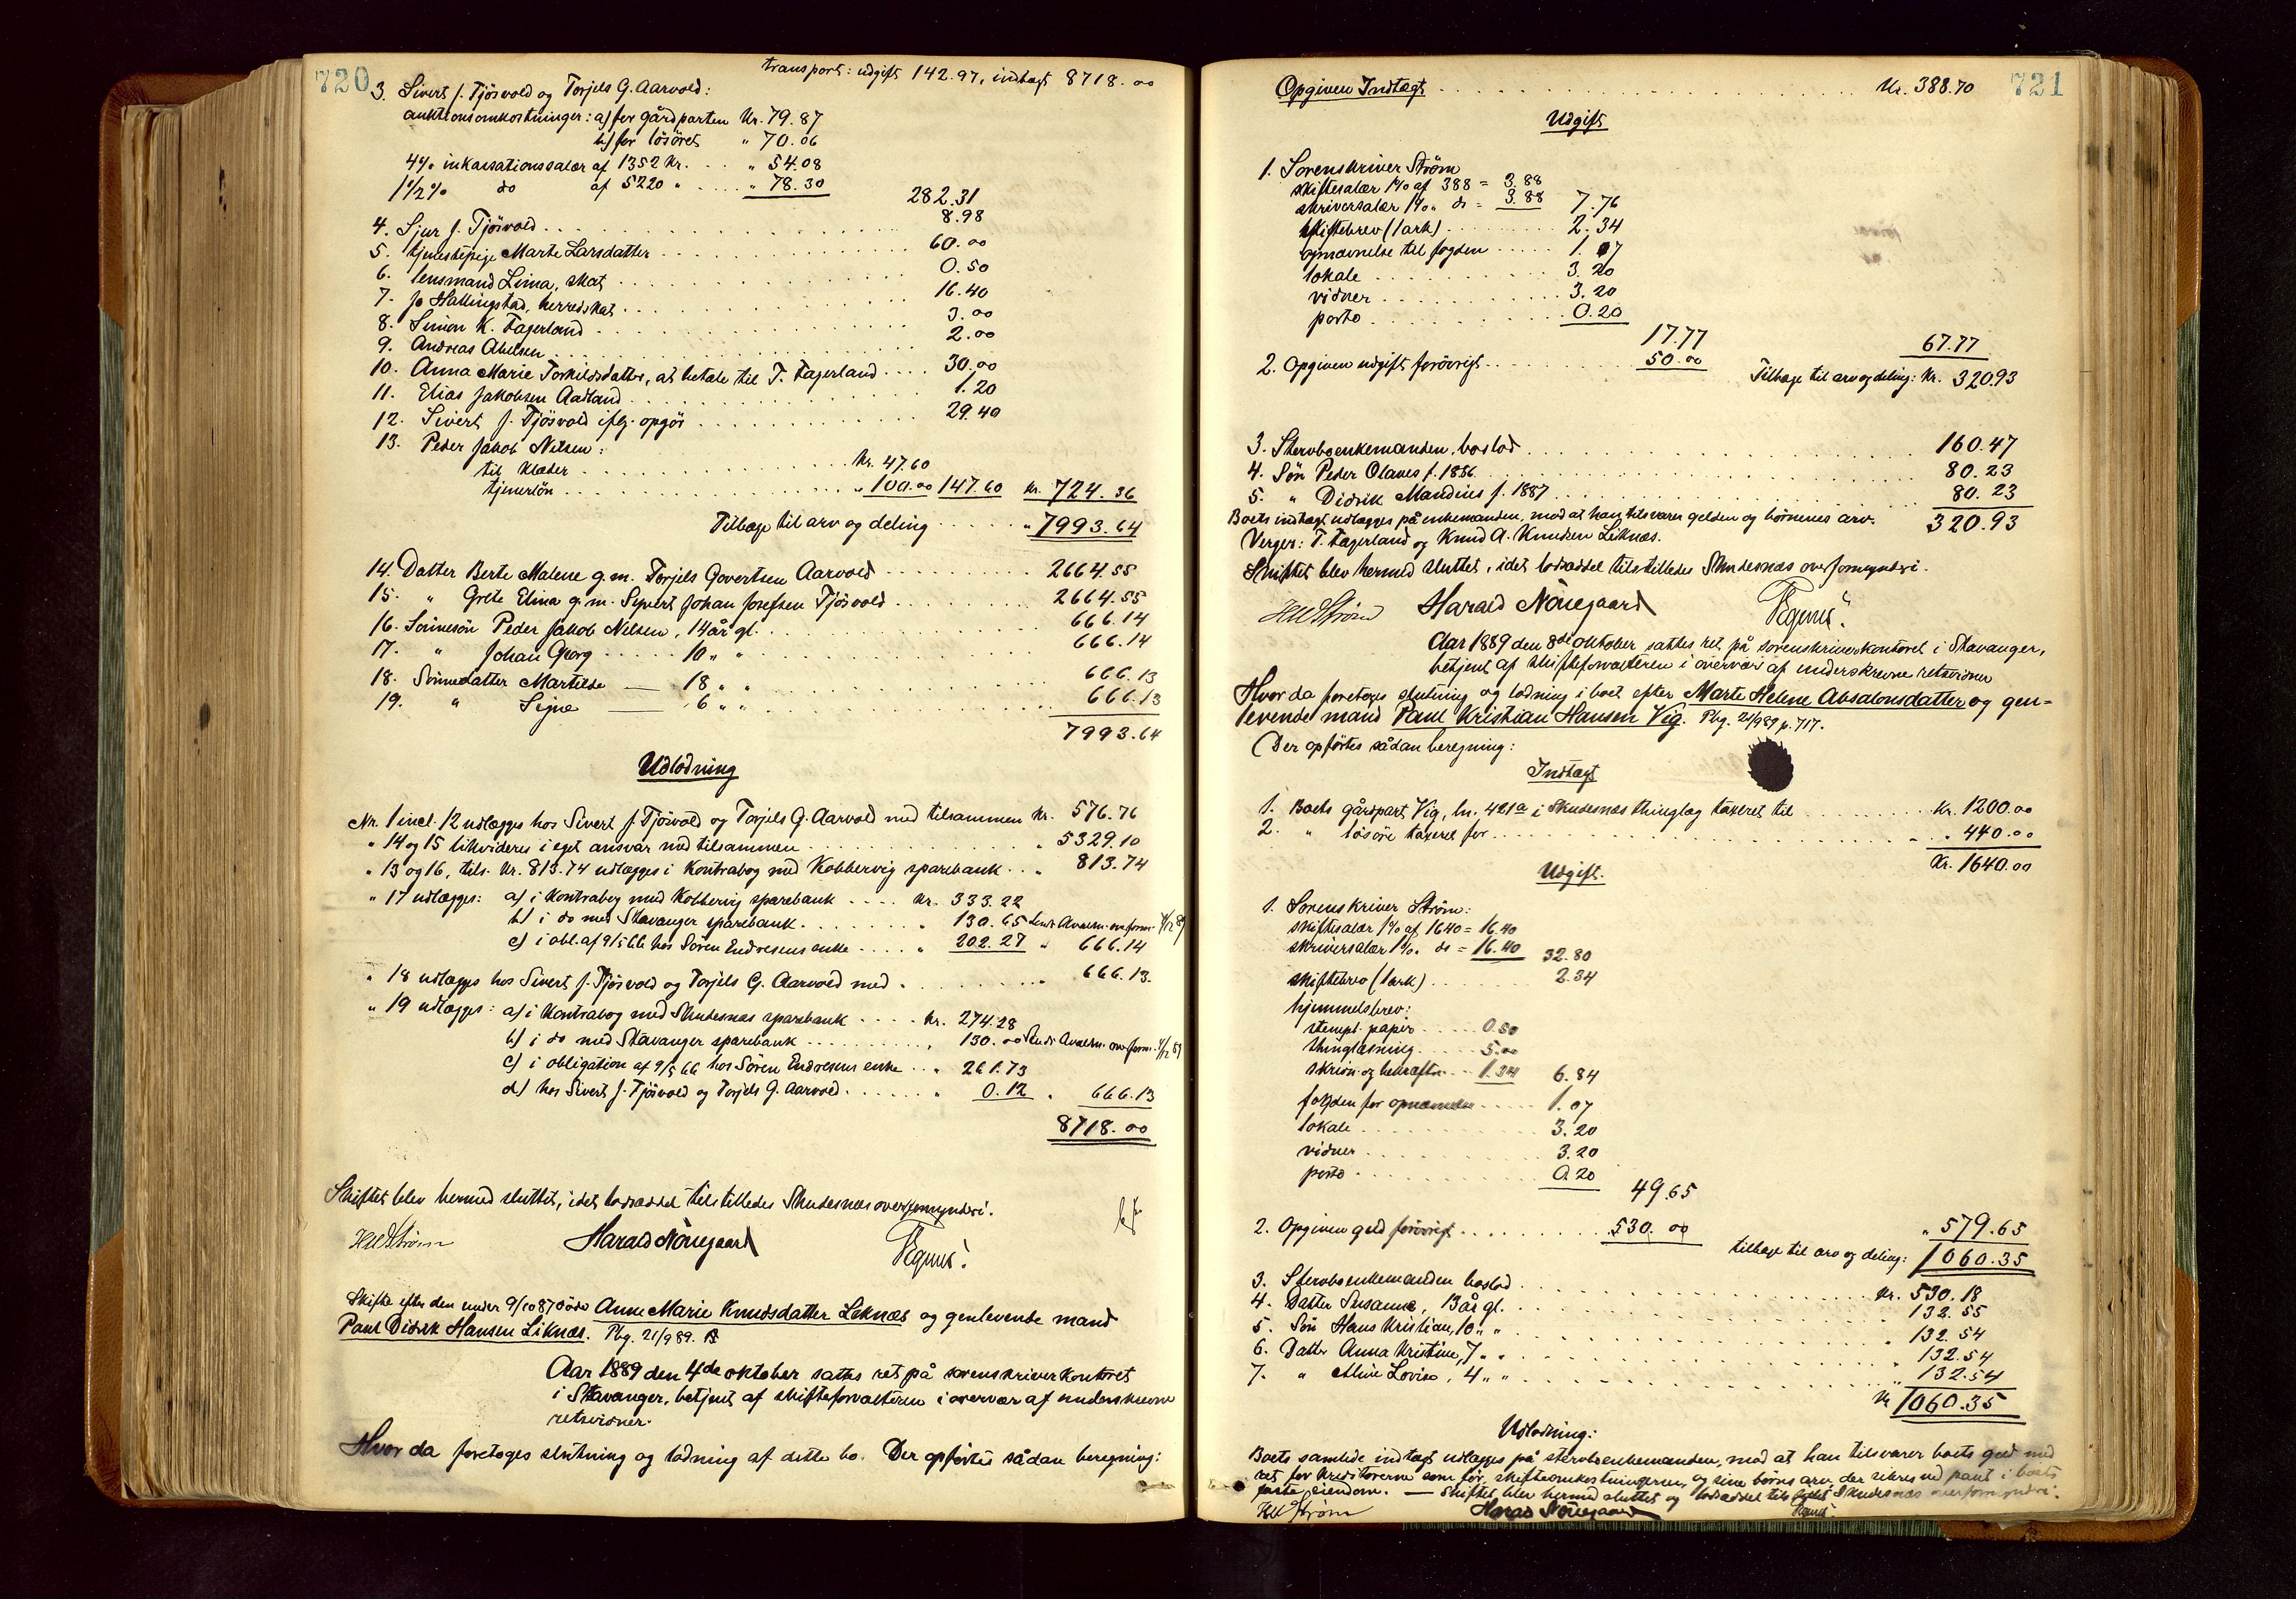 720
transport: udgift 142.97, indtægt 8718.00
3. Sivert J. Tjösvold og Torjels G. Aarvold:
auktionsomkostninger: a) for gårdparten Kr. 79.87
b) for lösöret " 70.06
4% inkassationssalær af 1352 Kr. . . . " 54.08
1 1/2 % do af 5220 " . . . . " 78.30 282.31
4. Sjur J. Tjösvold . . . 8.98
5. tjenestepige Marte Larsdatter . . . 60.00
6. lensmand Lima, skat . . . 0.50
7. Jo Hallingstad, herredskat . . . 16.40
8. Simon K. Fagerland . . . 3.00
9. Andreas Abelsen . . . 2.00
10. Anna Marie Torkildsdatter, at betale til T. Fagerland . . . . 30.00
11. Elias Jakobsen Aadland . . . 1.20
12. Sivert J. Tjösvold iflg. opgör . . . 29.40
13. Peder Jakob Nilsen:
til klæder . . . Kr. 47.60
tjenerlön . . . " 100.00 147.60 Kr. 724.36
Tilbage til arv og deling . . . . . " 7993.64
14. Datter Berte Malene g.m. Torjels Govertsen Aarvold . . . 2664.55
15. " Grete Elina g.m. Syvert Johan Josefsen Tjösvold . . . 2664.55
16. Sönnesön Peder Jakob Nilsen, 14 år gl. . . . 666.14
17. " Johan Georg . . . . . 10 " " 666.14
18. Sönnedatter Martilde — 18 " " . . . 666.13
19. " Signe — 6 " " . . . 666.13
7993.64
Udlodning
Nr. 1 incl. 12 udlægges hos Sivert J. Tjösvold og Torjels G. Aarvold med tilsammen Kr. 576.76
" 14 og 15 likvideres i eget ansvar med tilsammen . . . " 5329.10
" 13 og 16, tils. Kr. 813.74 udlægges i Kontrabog med Kobbervig sparebank . . . " 813.74
" 17 udlægges: a) i Kontrabog med Kobbervig sparebank . . . . Kr. 333.22
b) i do med Stavanger sparebank . . . " 130.65 Sendt Avaldsn. overform. 4/12 89
c) i obl. af 9/5 66 hos Sören Endresens enke . . . . " 202.27 " 666.14
" 18 udlægges hos Sivert J. Tjösvold og Torjels G. Aarvold med . . . " 666.13.
" 19 udlægges: a) i Kontrabog med Skudesnæs sparebank . . . . Kr. 274.28
b) i do med Stavanger sparebank . . . " 130.00 Sendt Avaldsn. overform. 4/12 89
c) i obligation af 9/5 66 hos Sören Endresens enke . . . " 261.73
d) hos Sivert J. Tjösvold og Torjels G. Aarvold . . . " 0.12 " 666.13
8718.00
Skiftet blev hermed sluttet, idet lodseddel tilstilledes Skudesnæs overformynderi.
HWStröm Harald Nöregaard
Skifte efter den under 9/10 87 döde Anne Marie Knudsdatter Liknæs og genlevende mand
Paul Didrik Hansen Liknæs. Pbg. 21/9 89.
Aar 1889 den 4de oktober sattes ret på sorenskriverkontoret
i Stavanger, betjent af skifteforvalteren i overvær af underskrevne
retsvidner.
Hvor da foretoges slutning og lodning af dette bo. Der opförtes sådan beregning:
721
Opgiven Indtægt . . . Kr. 388.70
Udgift
1. Sorenskriver Ström
skiftesalær 1% af 388 = 3.88
skriversalær 1% " do = 3.88 7.76
skiftebrev (1 ark) . . . 2.34
opnævnelse til fogden . . . . . 1.07
lokale . . . 3.20
vidner . . . 3.20
porto . . . 0.20
17.77
2. Opgiven udgift forövrigt . . . 50.00 67.77
Tilbage til arv og deling: Kr. 320.93
3. Sterboenkemanden, boslod . . . 160.47
4. Sön Peder Olaves f. 1886. . . . 80.23
5. " Didrik Mandius f. 1887 . . . 80.23
320.93
Boets indtægt udlægges på enkemanden, mod at han tilsvarer gelden og börnenes arv.
Verger: T. Fagerland og Knud A. Knudsen Liknæs.
Skiftet blev hermed sluttet, idet lodseddel tilstilledes Skudesnæs overformynderi.
HWStröm Harald Nöregaard
Aar 1889 den 8de oktober sattes ret på sorenskriverkontoret i Stavanger,
betjent af skifteforvalteren i overvær af underskrevne retsvidner
Hvor da foretoges slutning og lodning i boet efter Marte Helene Absalonsdatter og gen-
levende mand Paul Kristian Hansen Vig. Pbg. 21/9 89 p. 717.
Der opförtes sådan beregning:
Indtægt
1. Boets gårdpart Vig, ln. 421a i Skudesnæs thinglag taxeret til . . . Kr. 1200.00
2. " lösöre taxeret for . . . " 440.00
Kr. 1640.00
Udgift.
1. Sorenskriver Ström:
skiftesalær 1% af 1640 = 16.40
skriversalær 1% " do = 16.40 32.80
skiftebrev (1 ark) . . . 2.34
hjemmelsbrev:
stempl. papir . . . . . 0.50
thinglæsning . . . . 5.00
skrivn. og bekræftn. . . . 1.34 6.84
fogden for opnævnelse . . . . . 1.07
lokale . . . 3.20
vidner . . . 3.20
porto . . . 0.20
49.65
2. Opgiven geld forövrigt . . . 530.00 " 579.65
tilbage til arv og deling: 1060.35
3. Sterboenkemanden boslod . . . Kr. 530.18
4. Datter Susanne, 13 år gl. . . . 132.55
5. Sön Hans Kristian, 10 " " . . . " 132.54
6. Datter Anna Kristine, 7 " " . . . " 132.54
7. " Aline Lovise, 4 " " . . . " 132.54
Kr 1060.35
Udlodning:
Boets samlede indtægt udlægges på sterboenkemanden, mod at han tilsvarer boets geld med
ret for kreditorerne som för, skifteomkostningerne, og sine börns arv, der sikres ved pant i boets
faste eiendom. — Skiftet blev hermed sluttet og lodseddel tilstillet Skudesnæs overformynderi.
HWStröm Harald Nöregaard